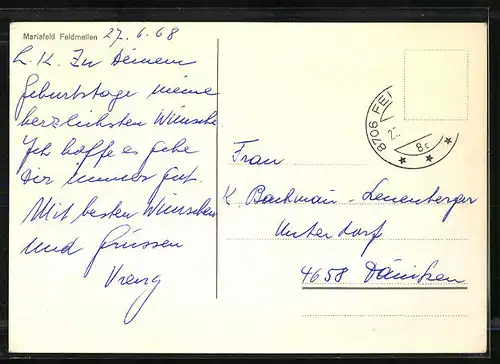 Mariafeld Feldmeilen 27.6.68
L. K. Zu Deinem
Geburtstage meine
herzlichsten Wünsche
Ich hoffe es gehe
Dir immer gut.
Mit besten Wünschen
und Grüssen
Vreny
8706 FEL
8c
Frau
K. Bachmann-Leuenberger
Unterdorf
4658 Däniken